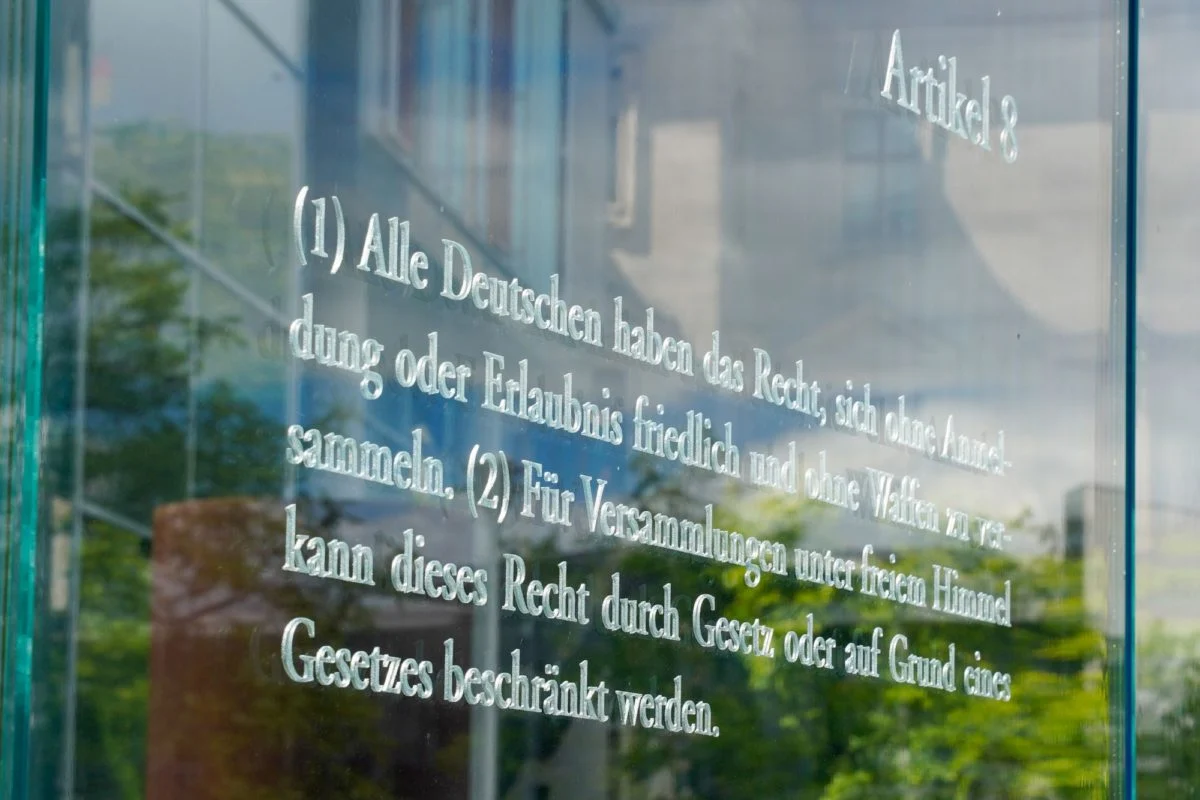 Artikel 8
(1) Alle Deutschen haben das Recht, sich ohne Anmel-
dung oder Erlaubnis friedlich und ohne Waffen zu ver-
sammeln. (2) Für Versammlungen unter freiem Himmel
kann dieses Recht durch Gesetz oder auf Grund eines
Gesetzes beschränkt werden.